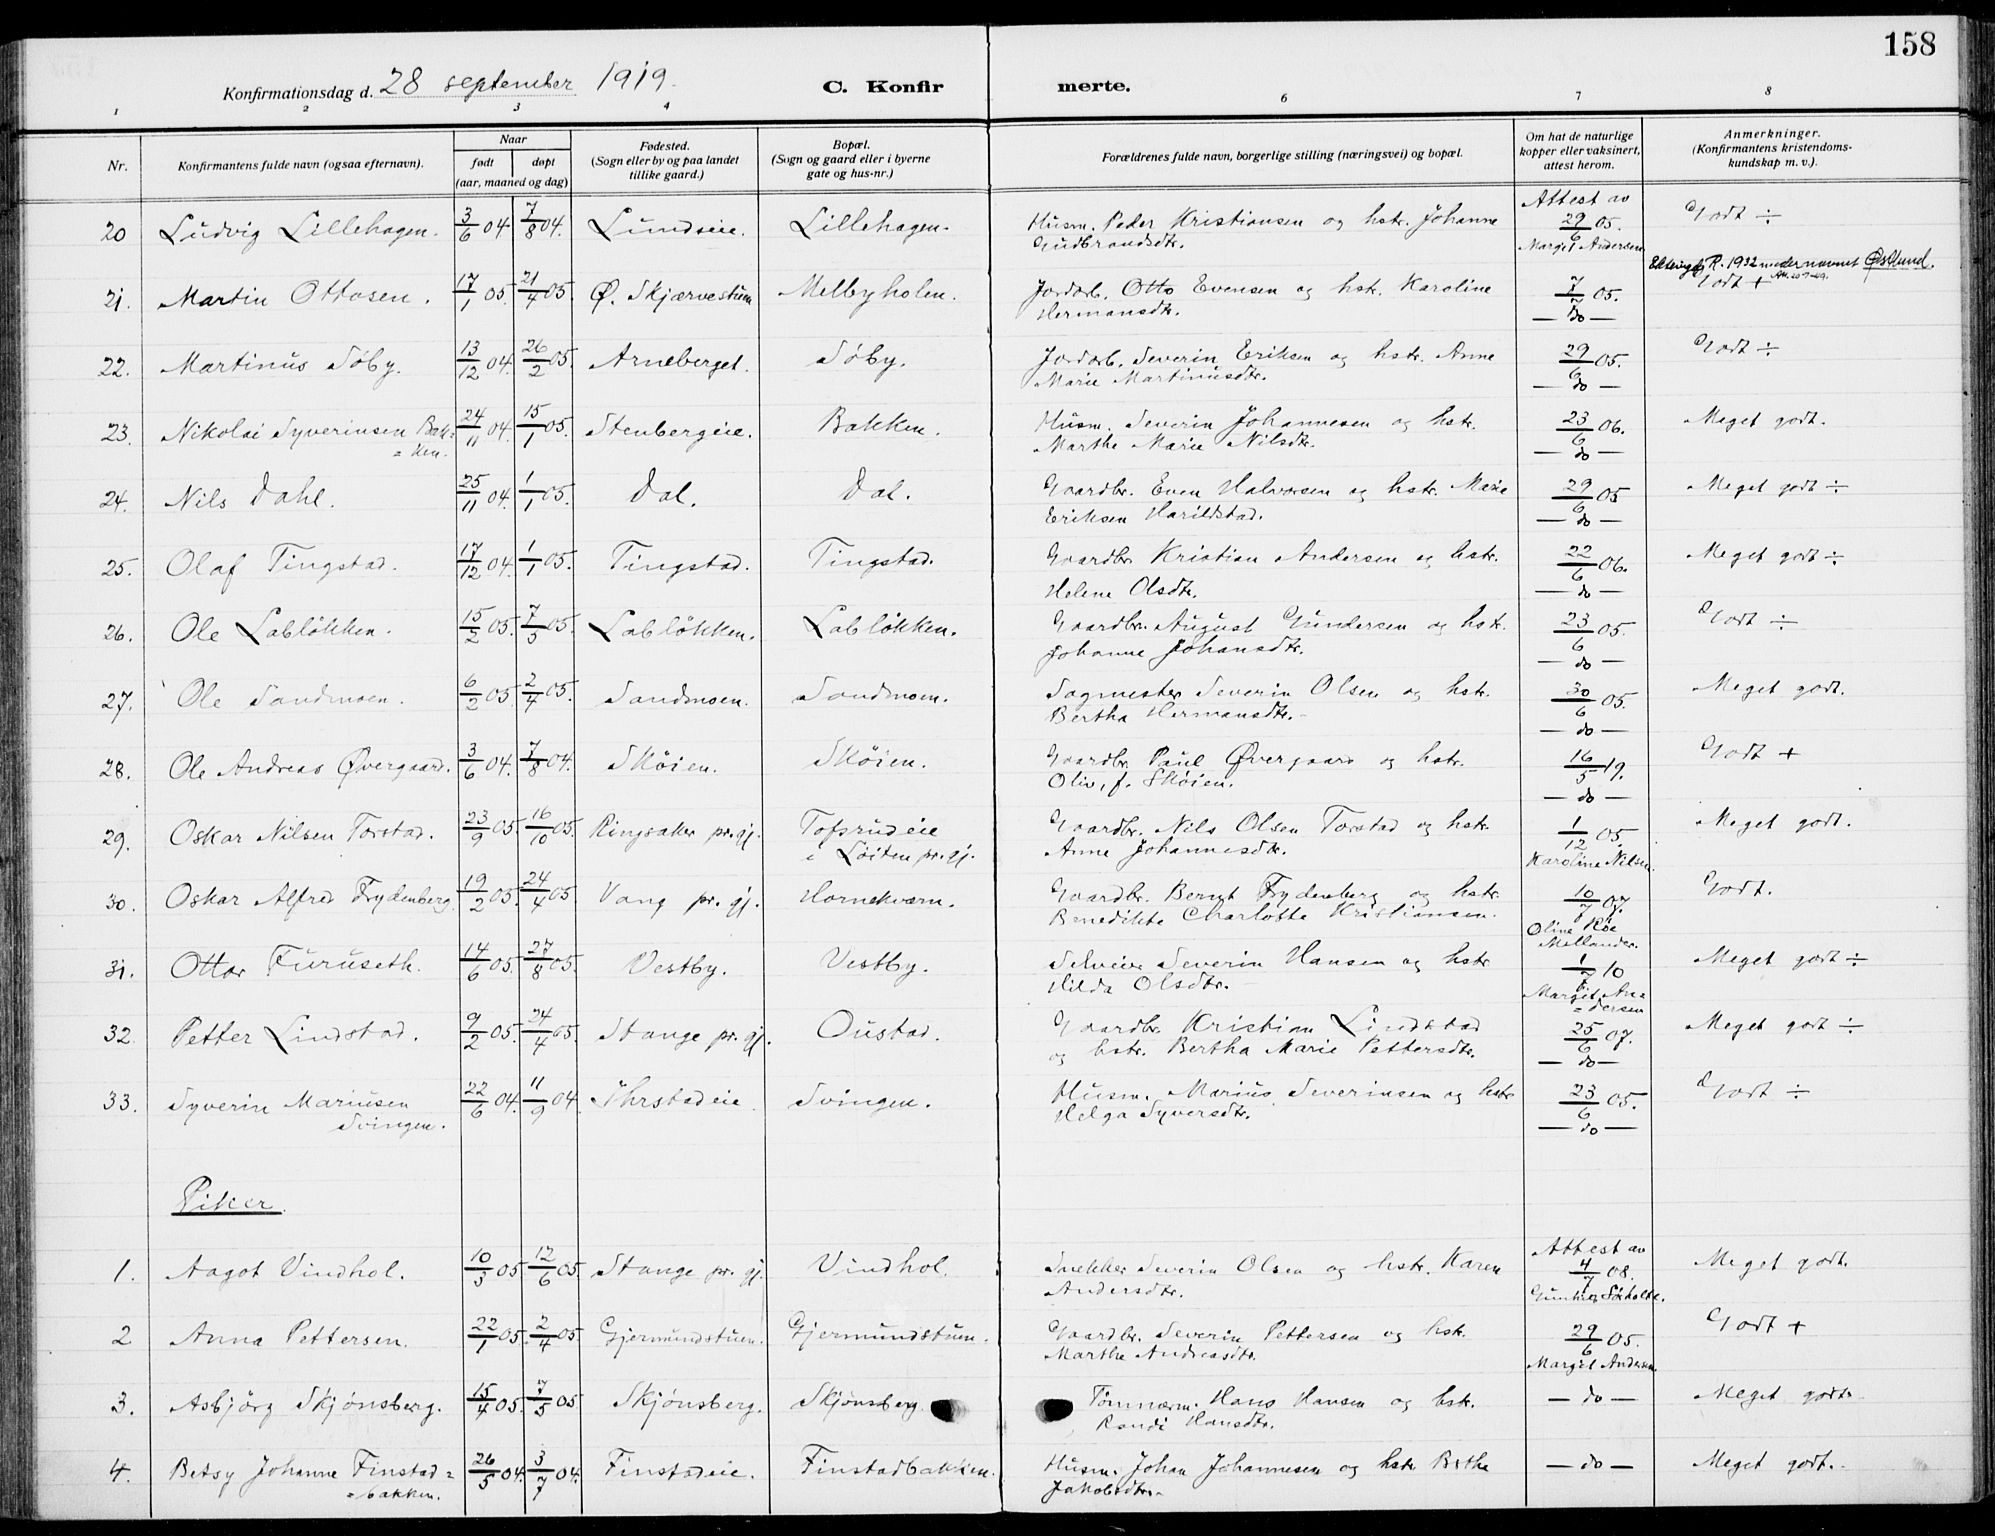 158
Konfirmationsdag d. 28 september 1919. C. Konfirmerte.
1 2 3 4 6 7 8
Nr. Konfirmantens fulde navn (ogsaa efternavn). Naar født døpt (aar, maaned og dag) Fødested. (Sogn eller by og paa landet tillike gaard.) Bopæl. (Sogn og gaard eller i byerne gate og hus-nr.) Forældrenes fulde navn, borgerlige stilling (næringsvei) og bopæl. Om hat de naturlige kopper eller vaksinert, attest herom. Anmerkninger. (Konfirmantens kristendomskundskap m. v.).
20 Ludvig Lillehagen. 3/6 04 7/8 04. Lundseie. Lillehagen. Husm. Peder Kristiansen og hstr. Johanne Attest av 29/6 05. Godt ÷
Gudbrandsdtr. Margit Andersen
R. 1932 med navnet Østlund.
21. Martin Ottosen. 17/1 05. 21/4 05. Ø. Skjærvestuen Melbyholen. Jordarb. Otto Evensen og hstr. Karoline 7/7 05. Godt +
Hermansdtr. — do —
22. Martinus Søby. 13/12 04. 26/2 05. Arneberget. Søby. Jordarb. Severin Eriksen og hstr. Anne 29/6 05. Godt ÷
Marie Martinusdtr. — do —
23. Nikolai Syverinsen Bak= 24/11 04. 15/1 05. Stenbergeie. Bakken. Husm. Severin Johannesen og hstr. 23/6 06. Meget godt.
=ken. Marthe Marie Nilsdtr. — do —
24. Nils Dahl. 25/11 04. 1/1 05. Dal. Dal. Gaardbr. Even Halvorsen og hstr. Marie 29/6 05 Meget godt ÷
Eriksen Harildstad. — do —
25. Olaf Tingstad. 17/12 04. 1/1 05. Tingstad. Tingstad. Gaardbr. Kristian Andersen og hstr. 22/6 06. Meget godt ÷
Helene Olsdtr. — do —
26. Ole Labløkken. 15/2 05. 7/5 05. Labløkken. Labløkken. Gaardbr. August Gundersen og hstr. 23/6 05. Godt ÷
Johanne Johansdtr. — do —
27. Ole Sandmoen. 6/2 05. 2/4 05. Sandmoen. Sandmoen. Sagmester Severin Olsen og hstr. 30/6 05. Meget godt.
Bertha Hermansdtr. — do —
28. Ole Andreas Øvergaard. 3/6 04. 7/8 04. Skøien. Skøien. Gaardbr. Paul Øvergaard og hstr. 16/5 19. Godt +
Oliv, f. Skøien. — do —
29. Oskar Nilsen Torstad. 23/9 05. 16/10 05. Ringsaker pr. gj. Tofsrudeie Gaardbr. Nils Olsen Torstad og hstr. 1/12 05. Meget godt.
i Løiten pr. gj. Anne Johannesdtr. Karoline Nilsen.
30. Oskar Alfred Frydenberg. 19/2 05. 24/4 05 Vang pr. gj. Hornekvern. Gaardbr. Bernt Frydenberg og hstr. 10/7 07. Godt.
Benedikte Charlotte Kristiansen. Oline Røe
31. Ottar Furuseth. 14/6 05. 27/8 05. Vestby. Vestby. Selveier Severin Hansen og hstr. 1/7 10 Meget godt ÷
Hilda Olsdtr. Margit An=
=dersen
32. Petter Lindstad. 9/2 05. 24/4 05. Stange pr. gj. Oustad. Gaardbr. Kristian Lindstad 25/6 07. Meget godt ÷
og hstr. Bertha Marie Pettersdtr. — do —
33. Syverin Mariusen 22/6 04. 11/9 04. Ihrstadeie Svingen. Husm. Marius Severinsen og hstr 23/6 05. Godt ÷
Svingen. Helga Syversdtr. — do —
Piker
1. Aagot Vindhol. 10/3 05 12/6 05. Stange pr. gj. Vindhol. Snekker Severin Olsen og hstr. Karen Attest av 4/7 08. Meget godt.
Andersdtr.
2 Anna Pettersen. 22/1 05. 2/4 05. Gjermundstuen. Gjermundstuen. Gaardbr. Severin Pettersen og hstr. 29/6 05. Godt +
Marthe Andreasdtr. Margit Andersen
3. Asbjörg Skjønsberg. 15/4 05. 7/5 05 Skjønsberg. Skjønsberg. Tømmerm. Hans Hansen og hstr. — do — Meget godt.
Randi Hansdtr.
4. Betsy Johanne Finstad= 26/5 04. 3/7 04. Finstadeie. Finstadbakken. Husm. Johan Johannesen og hstr Berthe — do — Meget godt.
=bakken. Jakobsdtr.